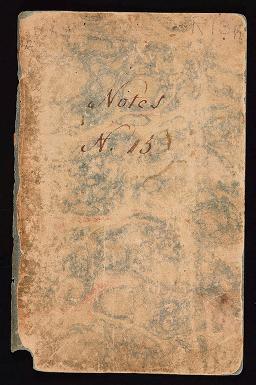 Notes
N. 15